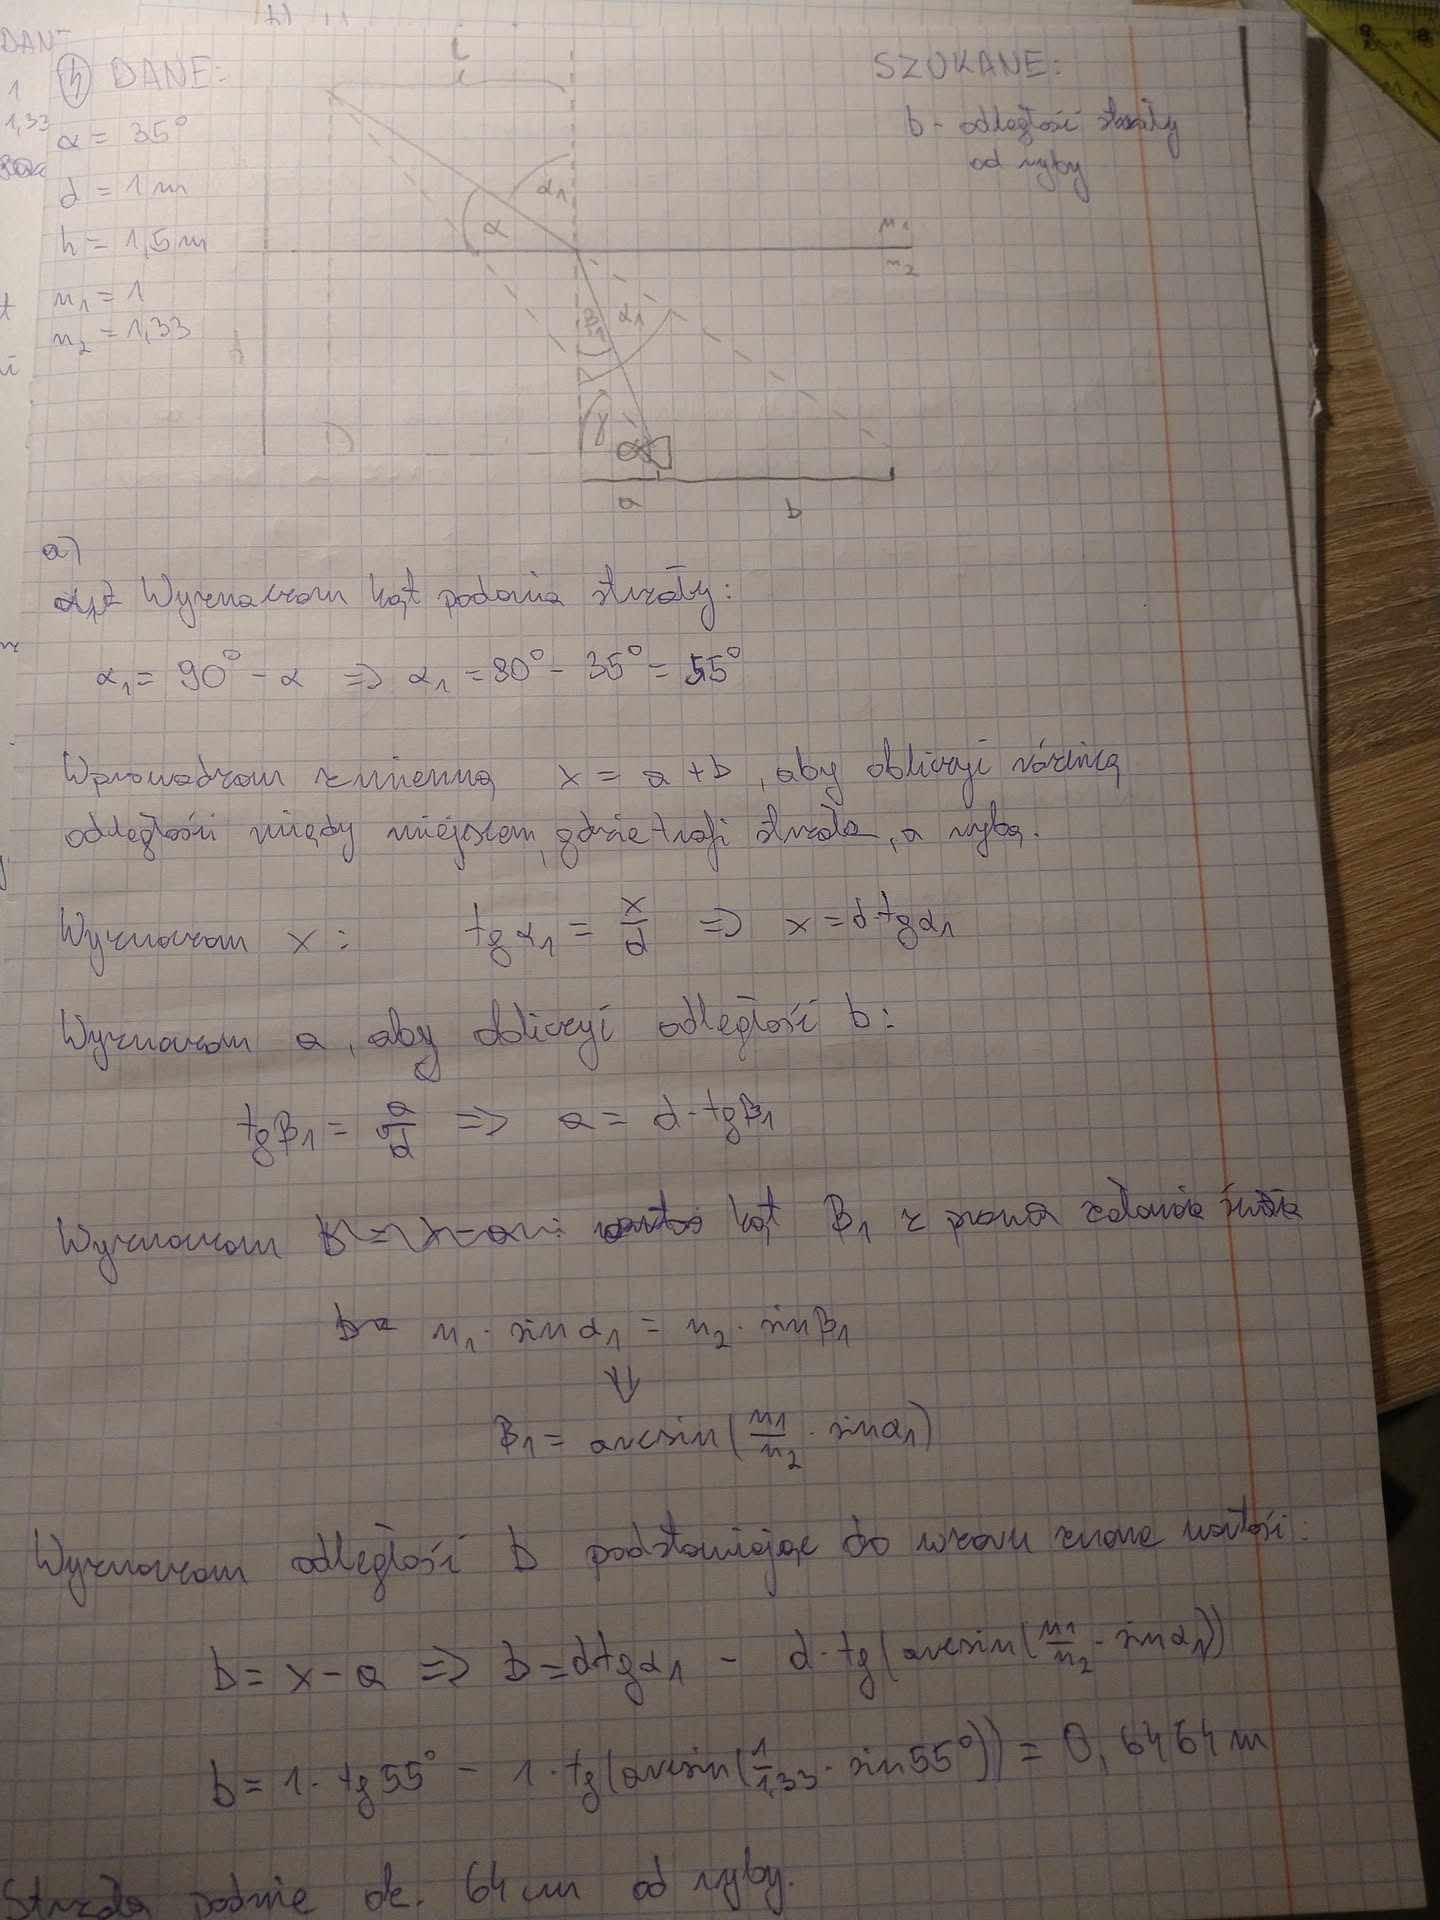 DANE
1
1,33
4 DANE:
SZUKANE:
α = 35°
d = 1 m
h = 1,5 m
n₁ = 1
n₂ = 1,33
b - odległość strzały
od ryby
α
α₁
n₁
n₂
β₁
α₁
γ
a
b
a)
Wyznaczam kąt padania strzały:
α₁ = 90° - α => α₁ = 90° - 35° = 55°
Wprowadzam zmienną x = a + b, aby obliczyć różnicę
odległości między miejscem, gdzie trafi strzała, a rybą.
Wyznaczam x: tg α₁ = x/d => x = d·tgα₁
Wyznaczam a, aby obliczyć odległość b:
tgβ₁ = a/d => a = d·tgβ₁
Wyznaczam kąt β₁ z prawa załamania światła
n₁ · sin α₁ = n₂ · sinβ₁
⇓
β₁ = arcsin(n₁/n₂ · sinα₁)
Wyznaczam odległość b podstawiając do wzoru znane wartości:
b = x - a => b = d·tgα₁ - d·tg(arcsin(n₁/n₂ · sinα₁))
b = 1· tg55° - 1·tg(arcsin(1/1,33 · sin55°)) = 0,6464 m
Strzała padnie ok. 64 cm od ryby.